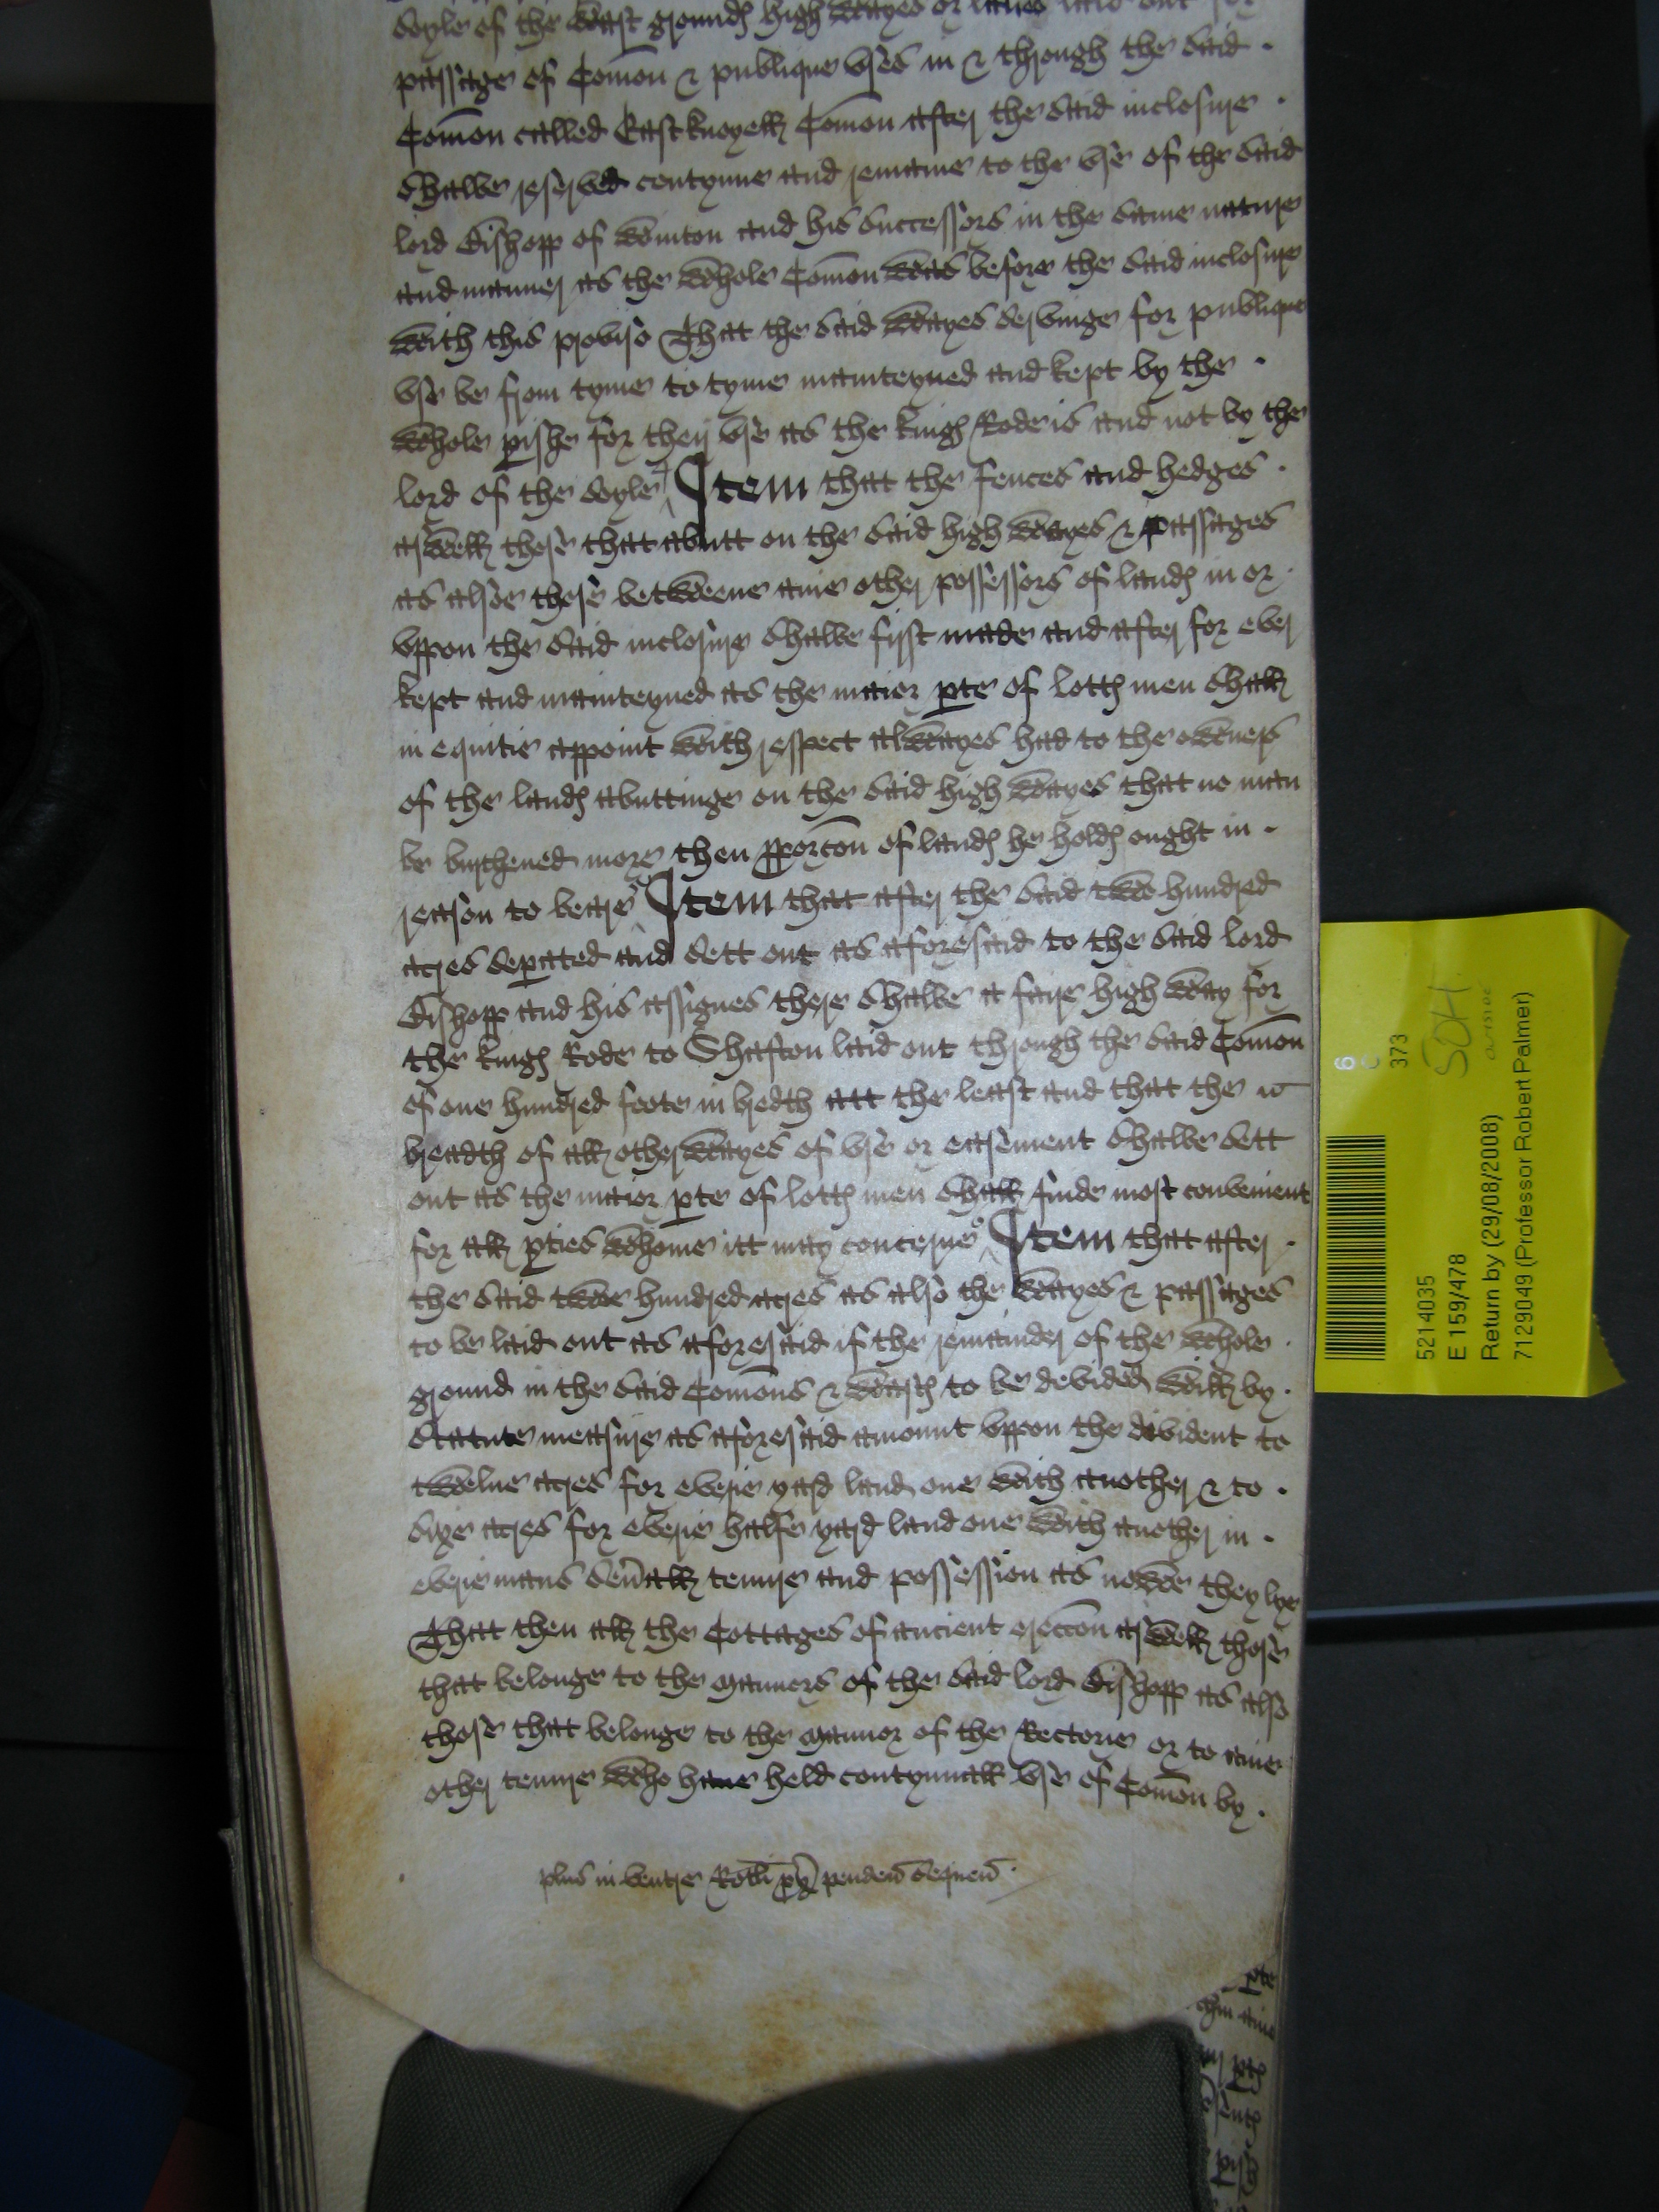 soyle of the Wast groundes high Wayes or lanes laid out for
passage of Comon & publique vses in & through the said
Comon called Eastknoyell Comon after the said inclosure
shalbe reserved contynue and remaine to the vse of the said
lord Bishopp of Winton and his successors in the same nature
and manner as the Whole Comon Was before the said inclosure
With this proviso That the said Wayes servinge for publique
vse be from tyme to tyme mainteyned and kept by the
Whole pishe for their vse as the kinges Rode is and not by the
lord of the soyle Item that the fences and hedges
asWell those that abutt on the said high Wayes & passages
as alsoe those betWeene anie other possessors of landes in or
vppon the said inclosure shalbe first made and after for ever
kept and mainteyned as the maior pte of lottes men shall
in equitie appoint With respect alWayes had to the oWners
of the landes abuttinge on the said high Wayes that no man
be burthened more then pporcon of landes he holdes ought in
reason to beare Item that after the said tWoe hundred
acres sepated and sett out as aforesaid to the said lord
Bishopp and his assignes there shalbe a faire high Way for
the kinges Rode to Shafton laid out through the said Comon
of one hundred foote in bredth att the least and that the
breadth of all other Wayes of vse or easement shalbe sett
out as the maior pte of lottes men shall finde most convenient
for all pties Whome itt may concerne Item that after
the said tWoe hundred acres as also the Wayes & passages
to be laid out as aforesaid if the remainder of the Whole
ground in the said Comons & Wastes to be devided Will by
statute measure as aforesaid amount vppon the divident to
tWelue acres for everie yard land one With another & to
sixe acres for everie halfe yard land one With another in
everie mans severall tenure and possession as noWe they lye
That then all the Cottages of ancient ereccon asWell those
that belonge to the mannors of the said lord Bishopp as also
those that belonge to the mannor of the Rectorie or to anie
other tenure Who haue held contynuall vse of Comon by
plus in ventre Rotli px penden sequen
6
373
SOH
5214035
E 159/478
Return by (29/08/2008)
7129049 (Professor Robert Palmer)